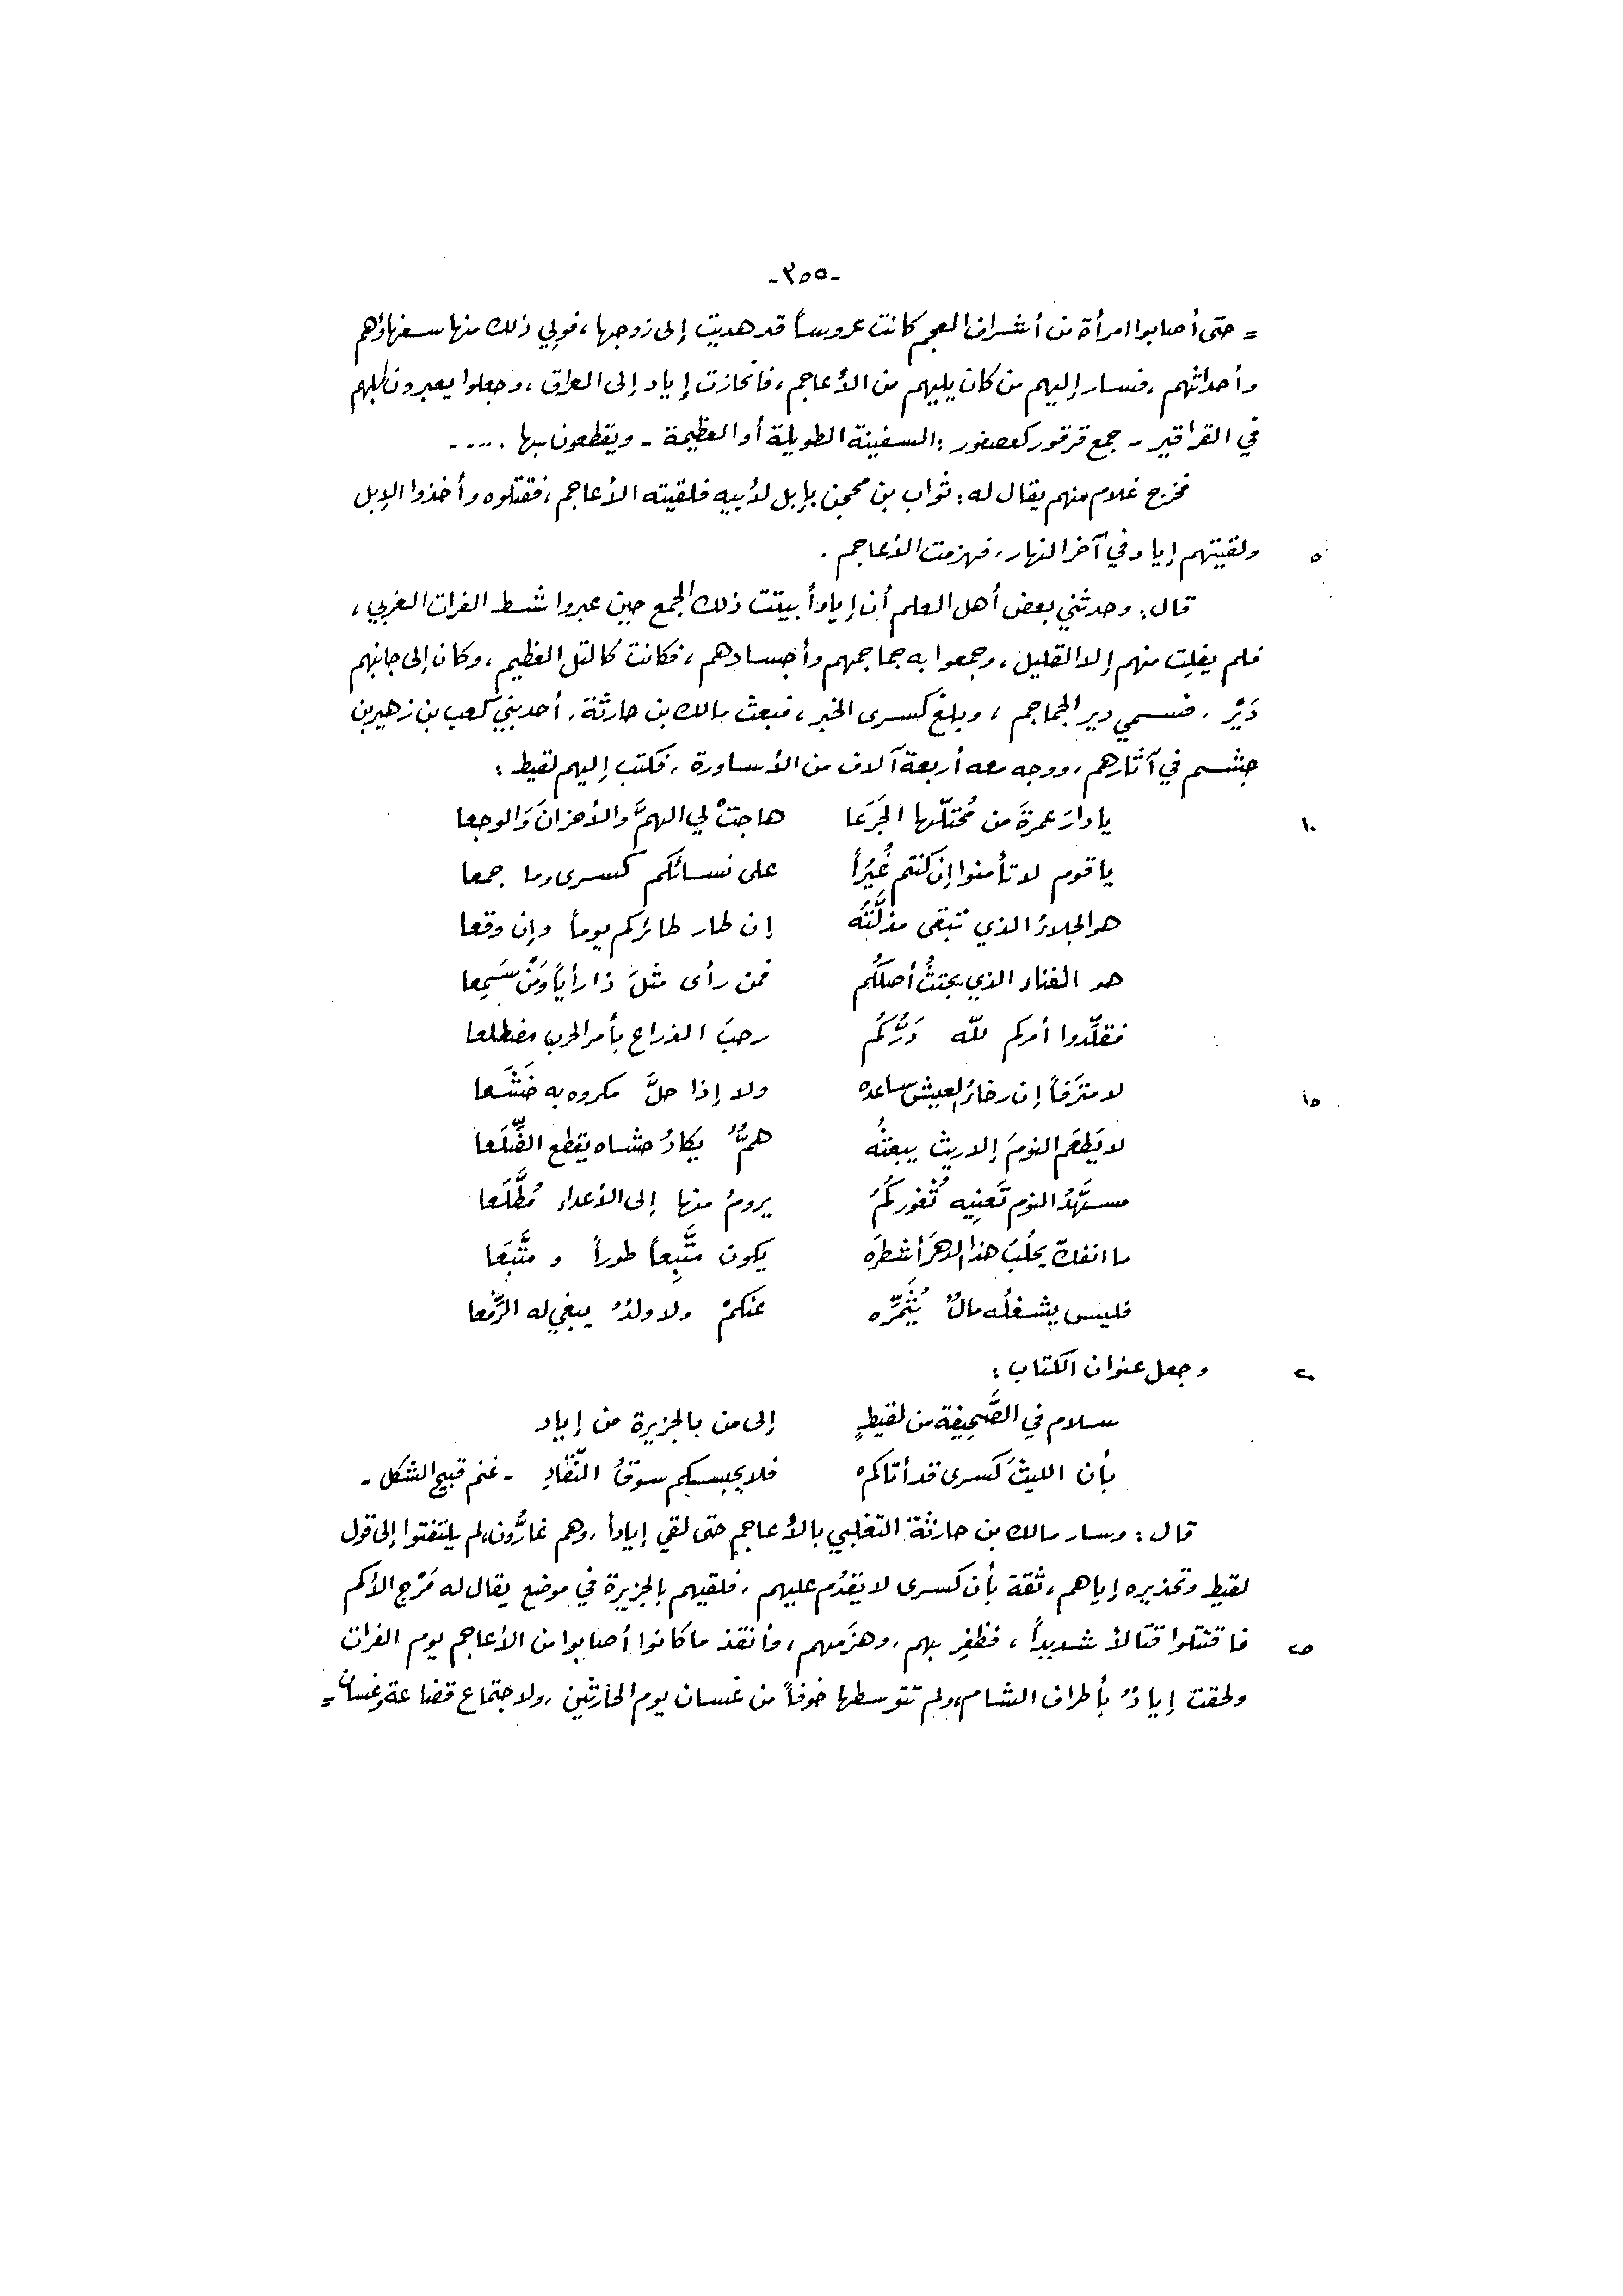 -٣٥٥-
= حتى أصابوا امرأة من أشراف العجم كانت عروساً قد هديت إلى زوجها، فولي ذلك منها سفهاؤهم
وأحداثهم، فسار إليهم من كان يليهم من الأعاجم، فانحازت إياد إلى العراق، وجعلوا يعبرون إبلهم
في القراقير - جمع قرقور كعصفور: السفينة الطويلة أو العظيمة - ويقطعون بها . ....
فخرج غلام منهم يقال له: ثواب بن محجن بإبل لأبيه فلقيته الأعاجم، فقتلوه وأخذوا الإبل
ولقيتهم إياد في آخر النهار، فهزمت الأعاجم . ٥
قال: وحدثني بعض أهل العلم أن إياداً بيتت ذلك الجمع حين عبروا شط الفرات الغربي،
فلم يفلِت منهم إلا القليل، وجمعوا به جماجمهم وأجسادهم، فكانت كالتل العظيم، وكان إلى جانبهم
دَيْرٌ، فسمي دير الجماجم، وبلغ كسرى الخبر، فبعث مالك بن حارثة، أحد بني كعب بن زهير بن
جشم في آثارهم، ووجه معه أربعة آلاف من الأساورة، فكتب إليهم لقيط:
يا دارَ عمرةَ من مُحْتلّها الجَرَعَا هاجتْ لي الهمَّ والأحزانَ وَالوجعا ١٠
يا قوم لا تأمنوا إن كنتم غُيُراً على نسائكم كسرى وما جمعا
هو الجلاءُ الذي تبقى مذلَّتُه إن طار طائركم يوماً وإن وقعا
هو الفناء الذي يجتثُّ أصلَكُم فمن رأى مثلَ ذا رأياً وَمَنْ سَمِعا
فقلِّدوا أمركم للّه دَرُّكُم رحبَ الذراع بأمر الحرب مضطلعا
لا مترَفاً إن رخاءُ العيش ساعده ولا إذا حلَّ مكروه به خَشَعا ١٥
لا يَطعَم النومَ إلا ريثَ يبعثُه همٌّ يكادُ حشاه يقطع الضِّلَعا
مسهَّدُ النوم تَعنِيه ثُغوركُمُ يرومُ منها إلى الأعداء مُطَّلَعا
ما انفكّ يحلُبُ هذا الدهرَ أشطرَه يكون متَّبِعاً طوراً و متَّبَعَا
فليس يشغلُه مالٌ يُثَمِّرُه عنكمُ ولا ولدٌ يبغي له الرِّفعا
وجعل عنوان الكتاب: ٢٠
سلام في الصَّحِيفة من لقيطٍ إلى من بالجزيرة من إياد
بأن الليثَ كسرى قد أتاكم فلا يحبسكم سوقُ النّقادِ - غنم قبيح الشكل -
قال: وسار مالك بن حارثة التغلبي بالأعاجم حتى لقي إياداً، وهم غارُّون، لم يلتفتوا إلى قول
لقيط وتحذيره إياهم، ثقة بأن كسرى لا يقدُم عليهم، فلقيهم بالجزيرة في موضع يقال له مَرْج الأكم
فاقتتلوا قتالاً شديداً، فظفِر بهم، وهزَمهم، وأنقذ ما كانوا أصابوا من الأعاجم يوم الفرات ٢٥
ولحقت إيادٌ بأطراف الشام، ولم تتوسطها خوفاً من غسان يوم الحارثين، ولاجتماع قضاعة وغسان =